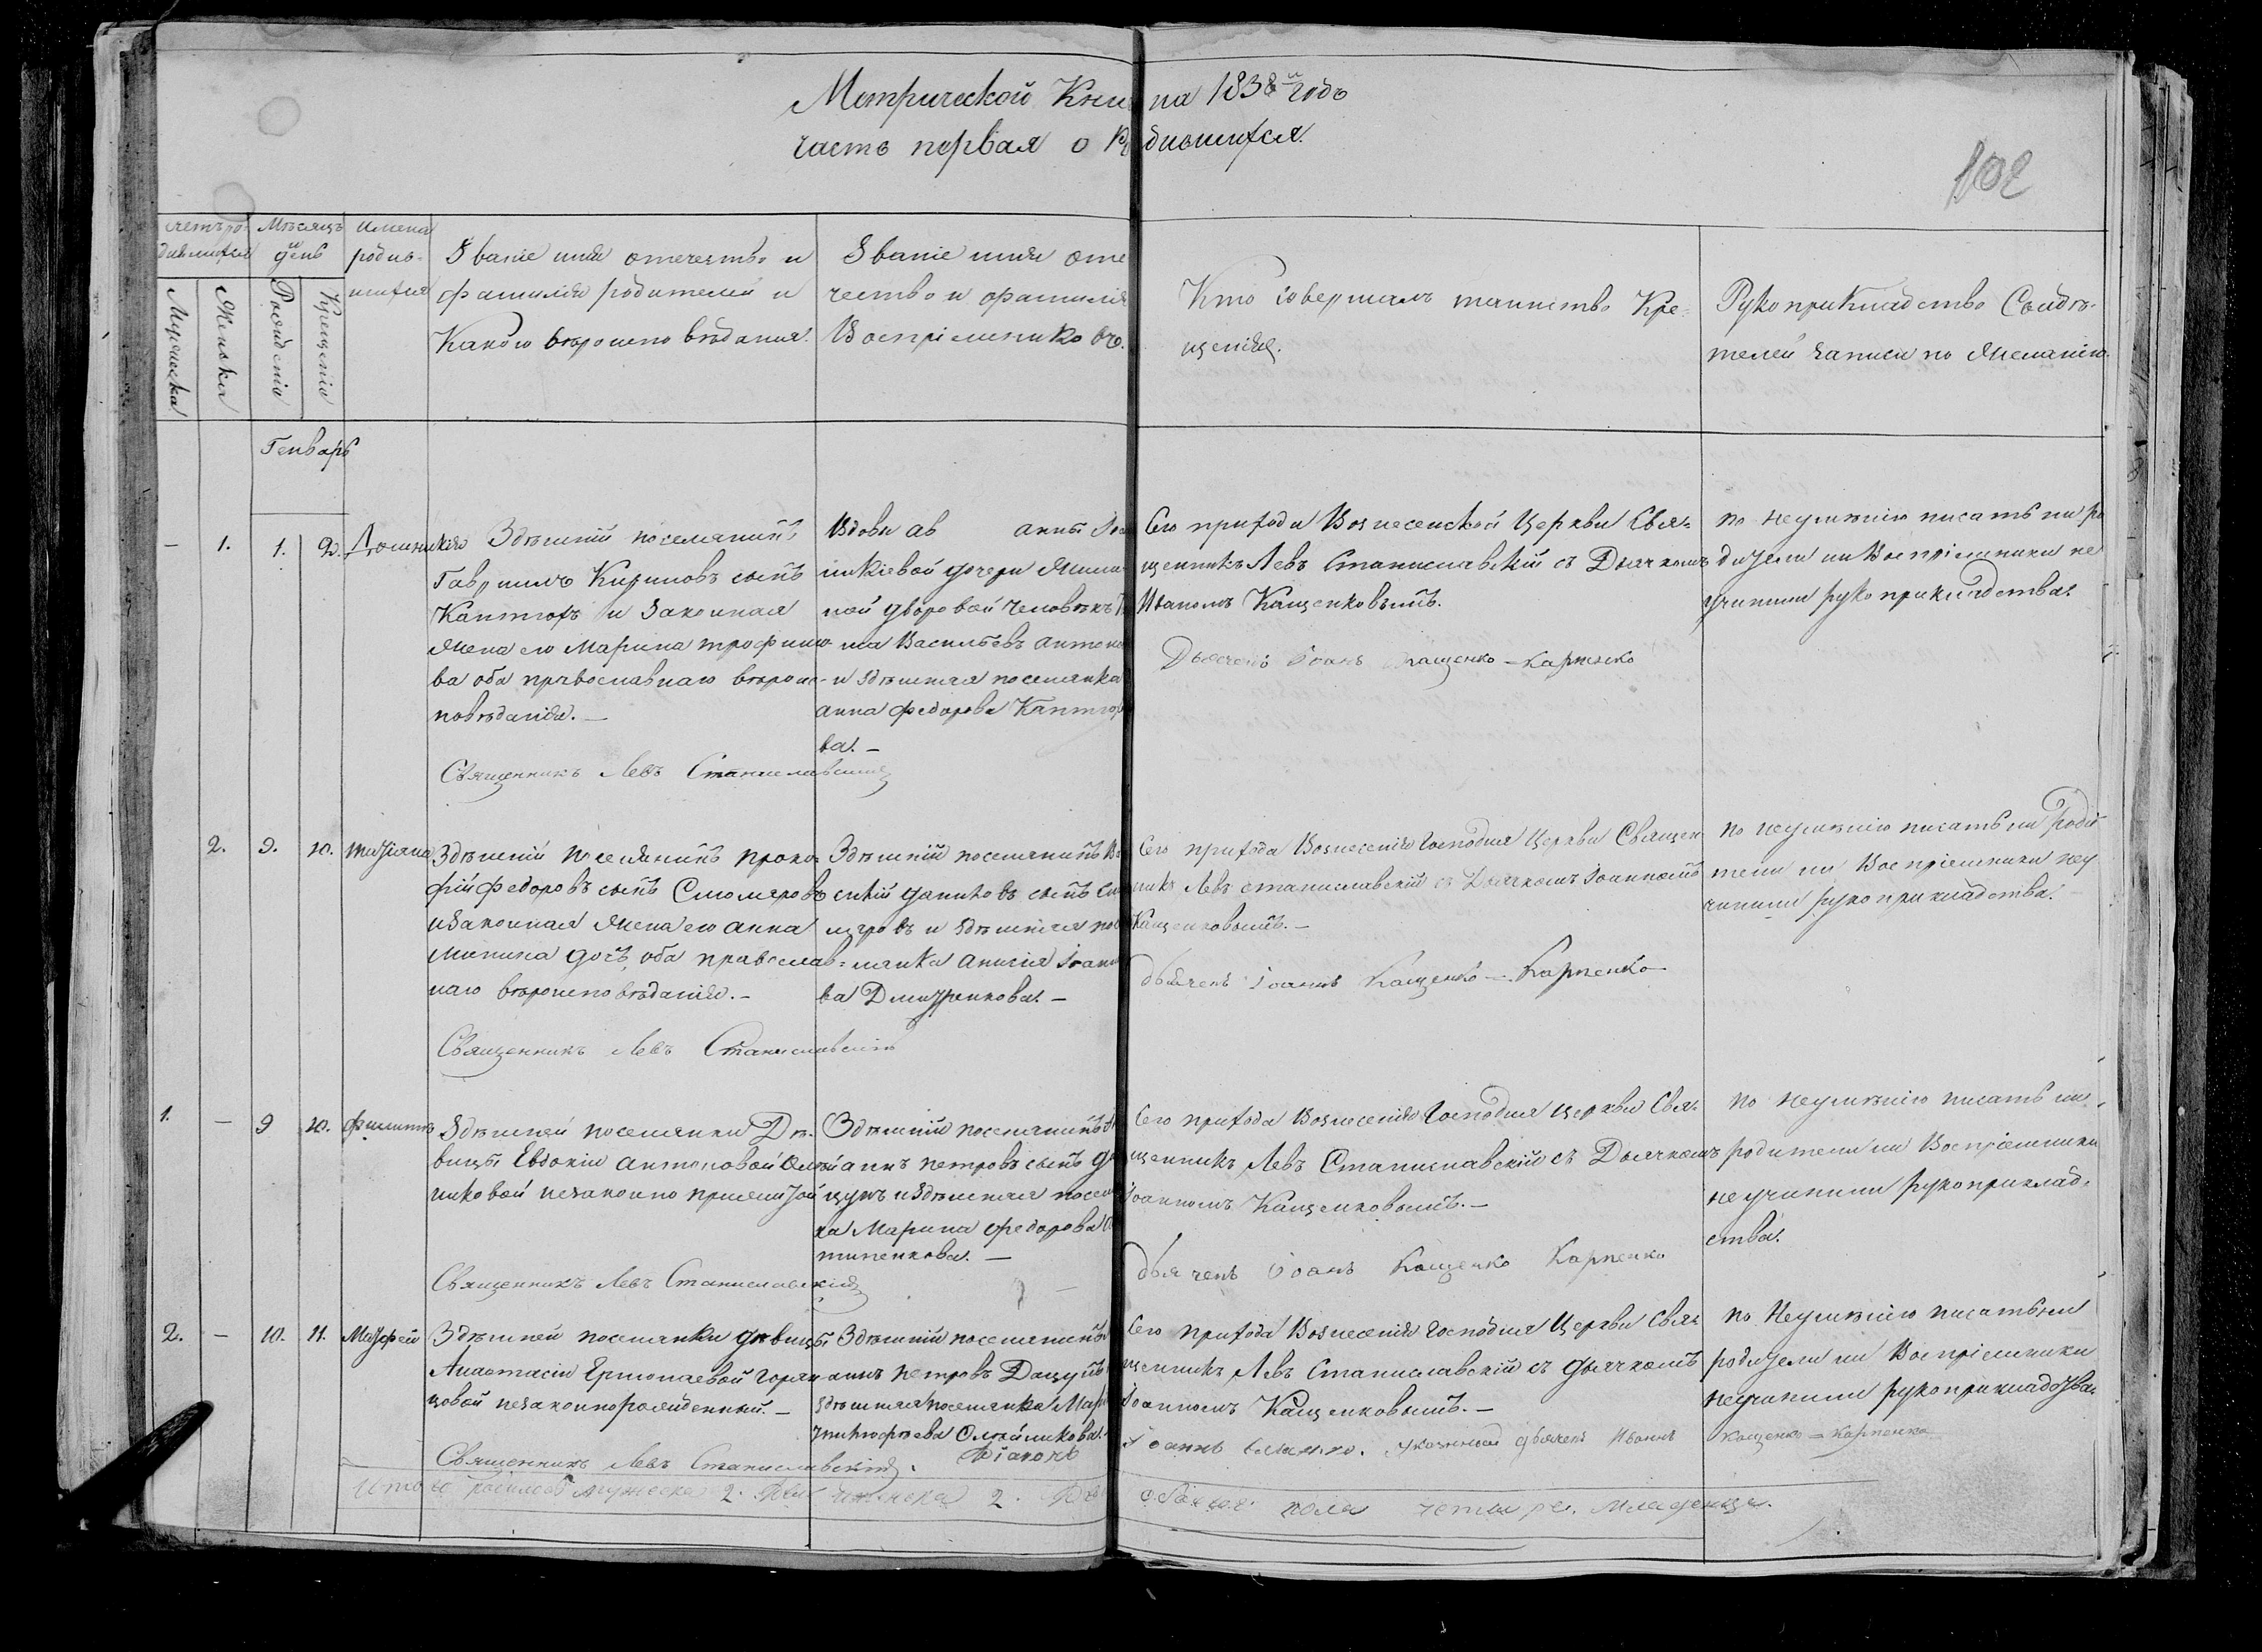 Метрической Кни на 1838й годъ
часть первая о Ро дившихся.
102
счетъ ро-
дившихся
Мужеска
Женска
Мѣсяцъ
и
день
Рожденія
Крещенія
Имена
родив-
шихся
Званіе имя отечество и
фамилія родителей и
Какого вѣроисповѣданія.
Званіе имя оте
чество и фамилія
Воспріемниковъ.
Кто совершалъ таинство Кре-
щенія.
Рукоприкладство Свидѣ-
телей записи по Желанію.
Генварь
– 1. 1. 2. Домникія
Здѣшній поселянинъ
Гавріилъ Кириловъ сынъ
Каптюхъ и Законная
Жена его Марина трофимо-
ва оба православнаго вѣроис-
повѣданія. –
Священникъ Левъ Станиславскій
Вдовы анны
дочери
ной дворовой человѣкъ
ма Васильевъ антоно
и здѣшняя поселянка
анна федорова
ва. –
Сего прихода Вознесенской Церкви Свя-
щенникъ Левъ Станиславскій съ Дьячкомъ
Иваномъ Кащенковымъ.
Дьячекъ Іоанъ Кащенко – Карпенко
по неумѣнію писать ни ро
дители ни Воспріемники не
учинили рукоприкладства.
2. 9. 10. татіана
Здѣшній поселянинъ проко-
фій федоровъ сынъ Смоляровъ
изаконная Жена его анна
Минина дочь, оба православ-
наго вѣроисповѣданія. –
Священникъ Левъ Станиславскій
Здѣшній поселянинъ
силій даниловъ сынъ См
ляровъ и здѣшняя по
лянка анисія Іоанно
ва Дмитренкова. –
Сего прихода Вознесенія Господня Церкви Священ
никъ Левъ станиславскій съ Дьячкомъ Іоанномъ
Кащенковымъ. –
дьячекъ Іоаннъ Кащенко – Карпенко
по неумѣнію писать ни Роди
тели ни Воспріемники неу
чинили рукоприкладства. –
1. – 9 10. филиппъ
Здѣшней поселянки Дѣ-
вицы Евдокіи антоновой Олей
никовой незаконно прижитой
Священникъ Левъ Станиславскій
Здѣшній поселянинъ
аннъ петровъ сынъ Да
цунъ издѣшняя посел
ка Марина федорова
типенкова. –
Сего прихода Вознесенія Господня церкви Свя-
щенникъ Левъ Станиславскій съ Дьячкомъ
Іоанномъ Кащенковымъ. –
дьячекъ Іоанъ Кащенко Карпенко
по неумѣнію писать ни
родители ни Воспріемники
не учинили рукоприклад-
ства.
2. – 10. 11. Матфей
Здѣшней поселянки дѣвицы
Анастасіи Ермолаевой Горян
цовой незаконнорожденный. –
Священникъ Левъ Станиславскій.
Здѣшній поселянинъ
аннъ петровъ Дацунъ
здѣшняя поселянка Мар
тимофѣева Олейникова.
діаконъ
Сего прихода Вознесенія Господня Церкви Свя-
щенникъ Левъ Станиславскій съ дьячкомъ
Іоанномъ Кащенковымъ. –
Іоаннъ дьячекъ Иванъ Кащенко – Карпенко
по Неумѣнію писать ни
родители ни Воспріемники
неучинили рукоприкладства.
Итого мужеска 2. женска 2. обоего пола четыре. младенца.